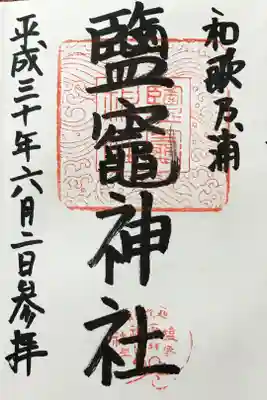 和歌乃浦
鹽竈神社
平成三十年六月二日参拝